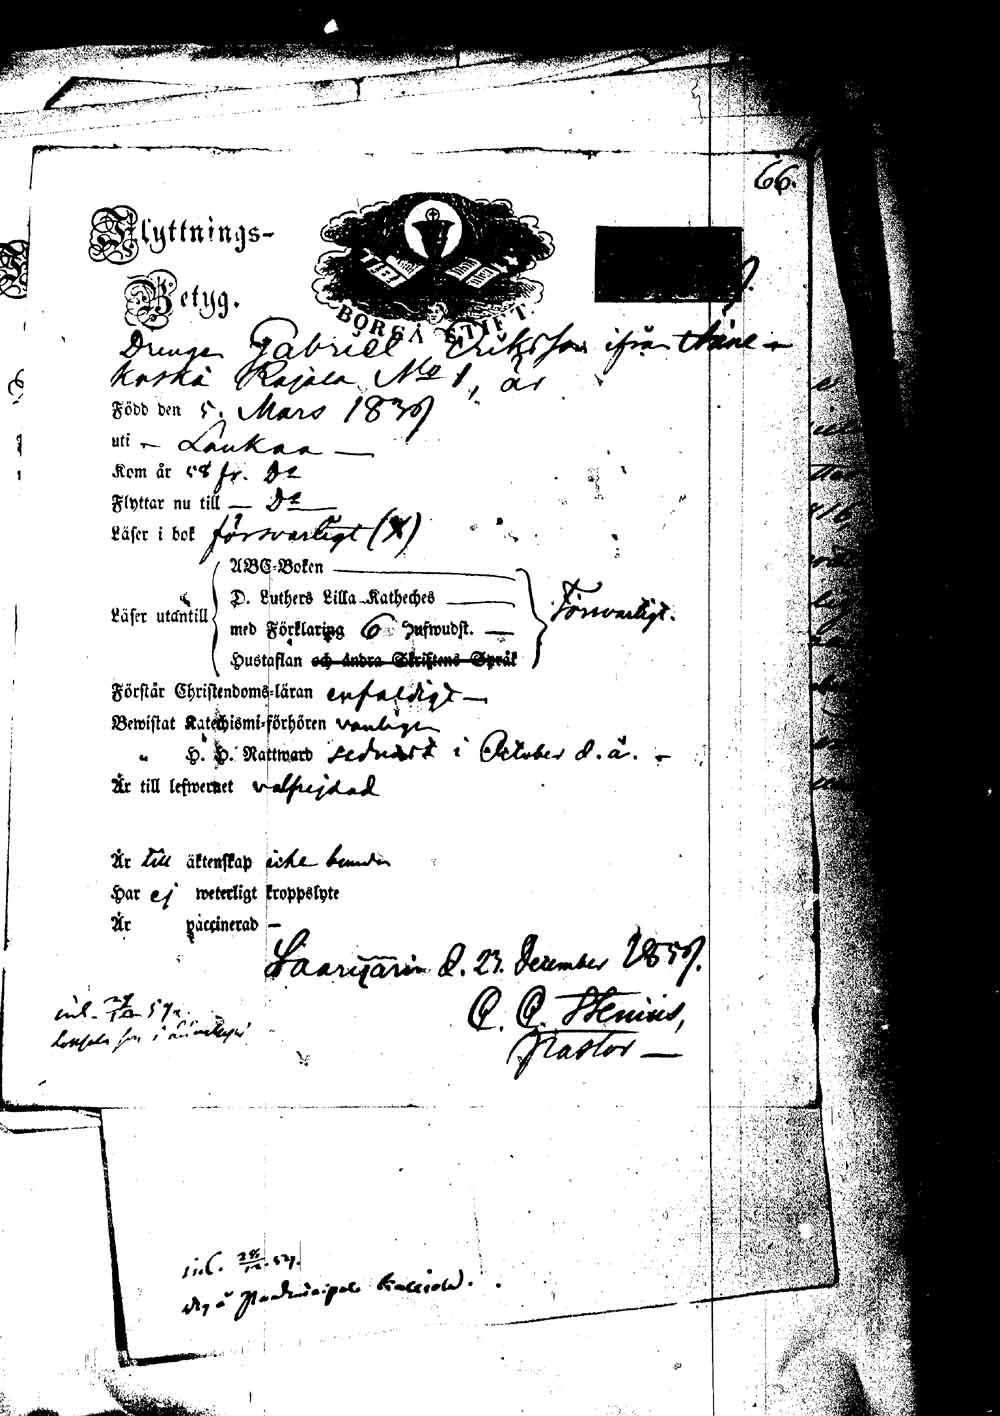 66.
Flyttnings-
Betyg.
BORGÅ STIFT.
Drengen Gabriel Eriksson ifrån Äänekoski Rajala No 1, är
Född den 5. Mars 1839
uti - Laukaa -
Kom år 58 fr. Do
Flyttar nu till - Do
Läser i bok försvarligt (X)
ABC-Boken
D. Luthers Lilla Katheches
Läser utantill
med Förklaring 6 Hufwudst. -
Försvarligt.
Hustaflan och andra Skriftens Språk
Förstår Christendoms-läran enfaldigt -
Bewistat Katechismi-förhören vanligen
" H. H. Nattward sednast i October d. å. -
Är till lefwernet välfrejdad
Är till äktenskap icke bunden
Har ej weterligt kroppslyte
Är vaccinerad -
Saarijärvi d. 23. December 1859.
C. C. Stenius,
Pastor -
inl.
inl. 28/12 59.